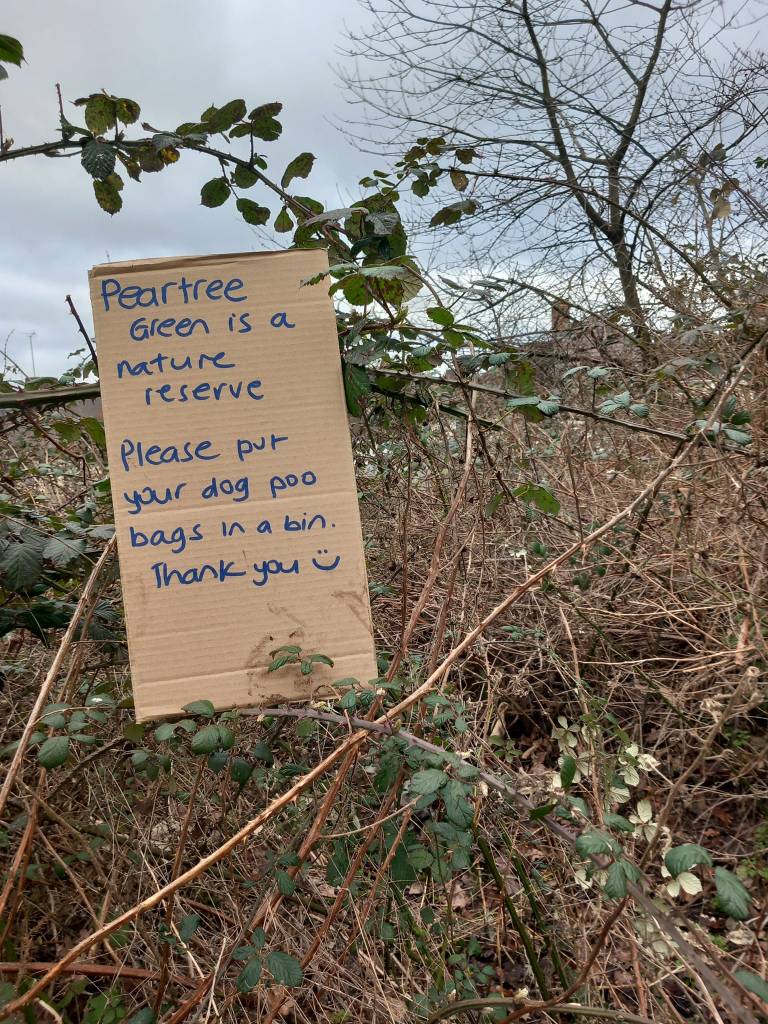 Peartree
Green is a
nature
reserve
Please put
your dog poo
bags in a bin.
Thank you :)